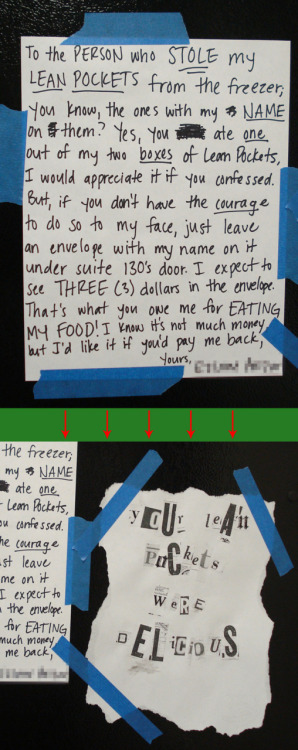 To the PERSON who STOLE my
LEAN POCKETS from the freezer,
you know, the ones with my NAME
on them? Yes, you ate one
out of my two boxes of Lean Pockets,
I would appreciate it if you confessed.
But, if you don't have the courage
to do so to my face, just leave
an envelope with my name on it
under suite 130's door. I expect to
see THREE (3) dollars in the envelope.
That's what you owe me for EATING
MY FOOD! I know it's not much money
but I'd like it if you'd pay me back,
Yours,
the freezer,
my NAME
ate one
Lean Pockets,
ou confessed.
he courage
ust leave
me on it
I expect to
the envelope.
for EATING
much money
me back,
yOUr leAn
PoCkets
WeRE
DELiciOUS